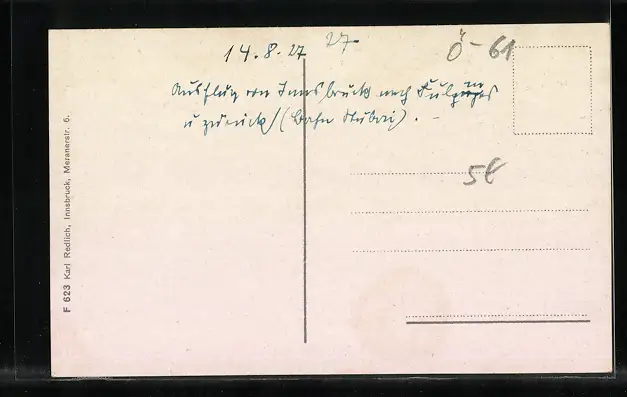 14.8.27
27
Ö-61
Ausflug von Innsbruck nach
u zurück (Bahn Stubai). -
5€
F 623 Karl Redlich, Innsbruck, Meranerstr. 6.